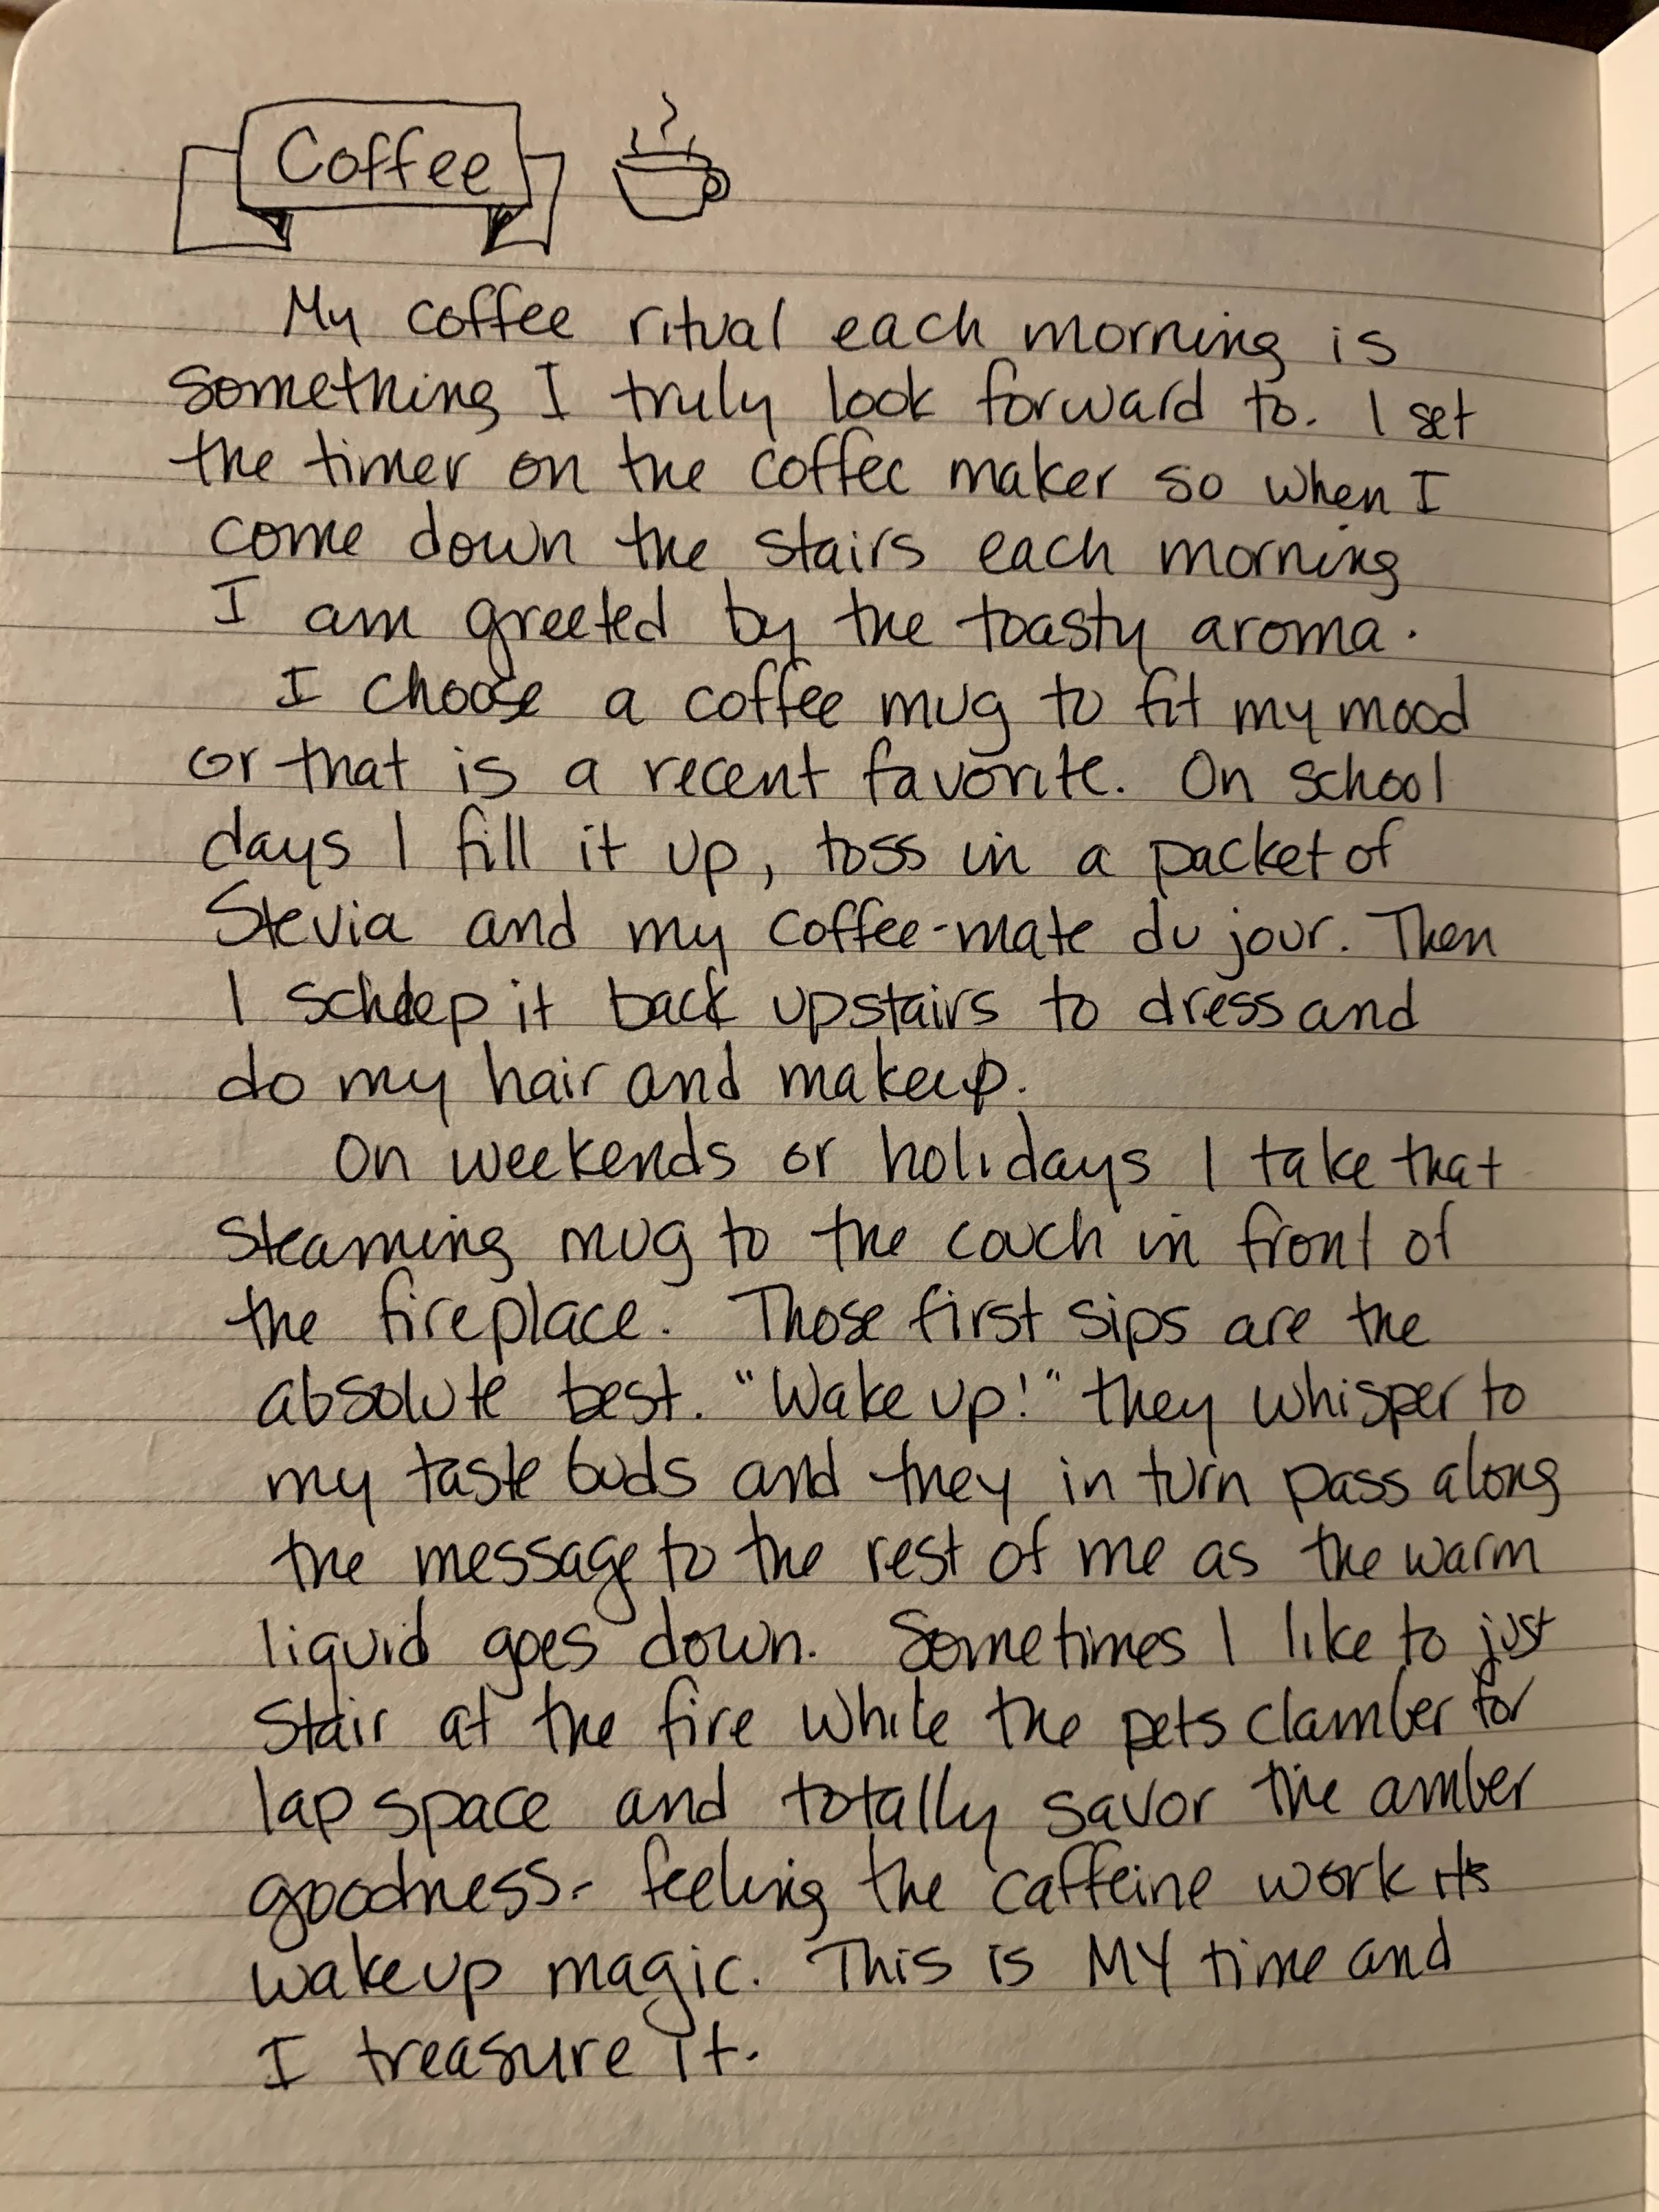 Coffee
My coffee ritual each morning is
something I truly look forward to. I set
the timer on the coffee maker so when I
come down the stairs each morning
I am greeted by the toasty aroma.
I choose a coffee mug to fit my mood
or that is a recent favorite. On school
days I fill it up, toss in a packet of
Stevia and my coffee-mate du jour. Then
I schlep it back upstairs to dress and
do my hair and makeup.
On weekends or holidays I take that
steaming mug to the couch in front of
the fireplace. Those first sips are the
absolute best. "Wake up!" they whisper to
my taste buds and they in turn pass along
the message to the rest of me as the warm
liquid goes down. Sometimes I like to just
stair at the fire while the pets clamber for
lap space and totally savor the amber
goodness - feeling the caffeine work its
wakeup magic. This is MY time and
I treasure it.